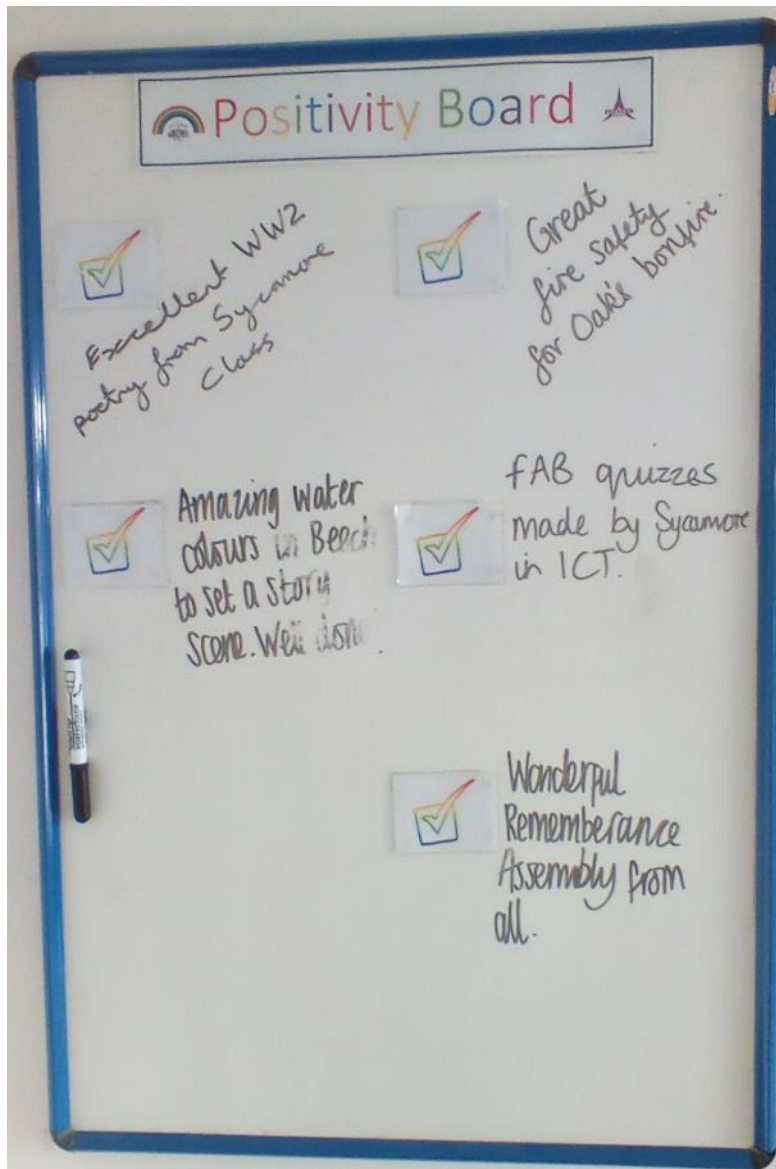 Positivity Board
Excellent WW2
poetry from Sycamore
Class
Great
fire safety
for Oak's bonfire.
Amazing water
colours in Beech
to set a story
scene. Well done
FAB quizzes
made by Sycamore
in ICT.
Wonderful
Rememberance
Assembly from
all.